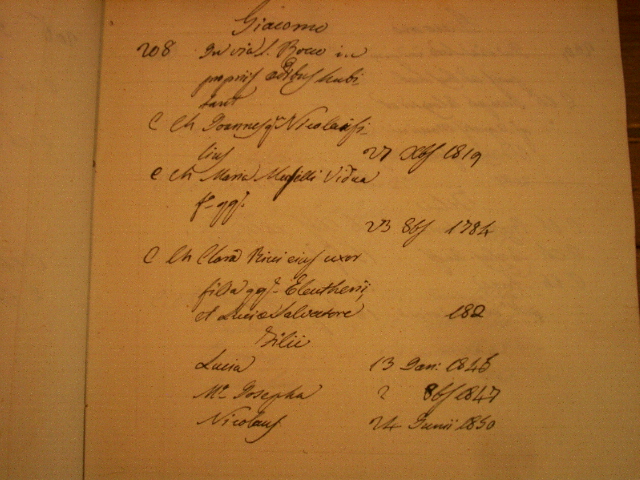 Giacomo
208 In via S. Rocco in
propriis ædibus habi
tant
C Ch Joannes qm Nicolai fi
lius 27 Xbs 1819
C Ch Maria Vidua
fa qq.
23 8bs 1784
C Ch Clara Ricci eius uxor
filia qq. Eleutherii
et Lucia Salvatore 182
Filii
Lucia 13 Jan: 1846
Ma Josepha 2 8bs 1847
Nicolaus 24 Junii 1850